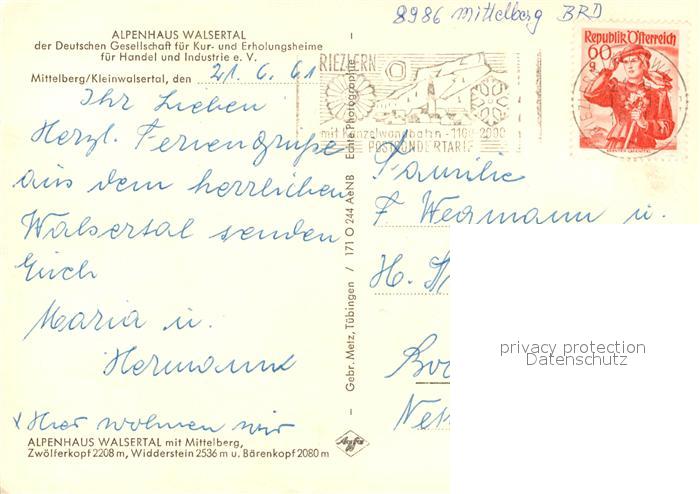 8986 Mittelberg BRD
ALPENHAUS WALSERTAL
der Deutschen Gesellschaft für Kur- und Erholungsheime
für Handel und Industrie e. V.
Mittelberg/Kleinwalsertal, den 21. 6. 61
Ihr Lieben
Herzl. Feriengrüße
aus dem herrlichen
Walsertal senden
Euch
Maria u.
Hermann
x Hier wohnen wir
ALPENHAUS WALSERTAL mit Mittelberg,
Zwölferkopf 2208 m, Widderstein 2536 m u. Bärenkopf 2080 m
Gebr. Metz, Tübingen / 171 O 244 AeNB Echte Photographie
Agfa
RIEZLERN
mit Kanzelwandbahn - 1100-2000
POSTSONDERTARIF
Republik Österreich
60
g
Familie
F. Wegmann u.
H.
privacy protection
Datenschutz